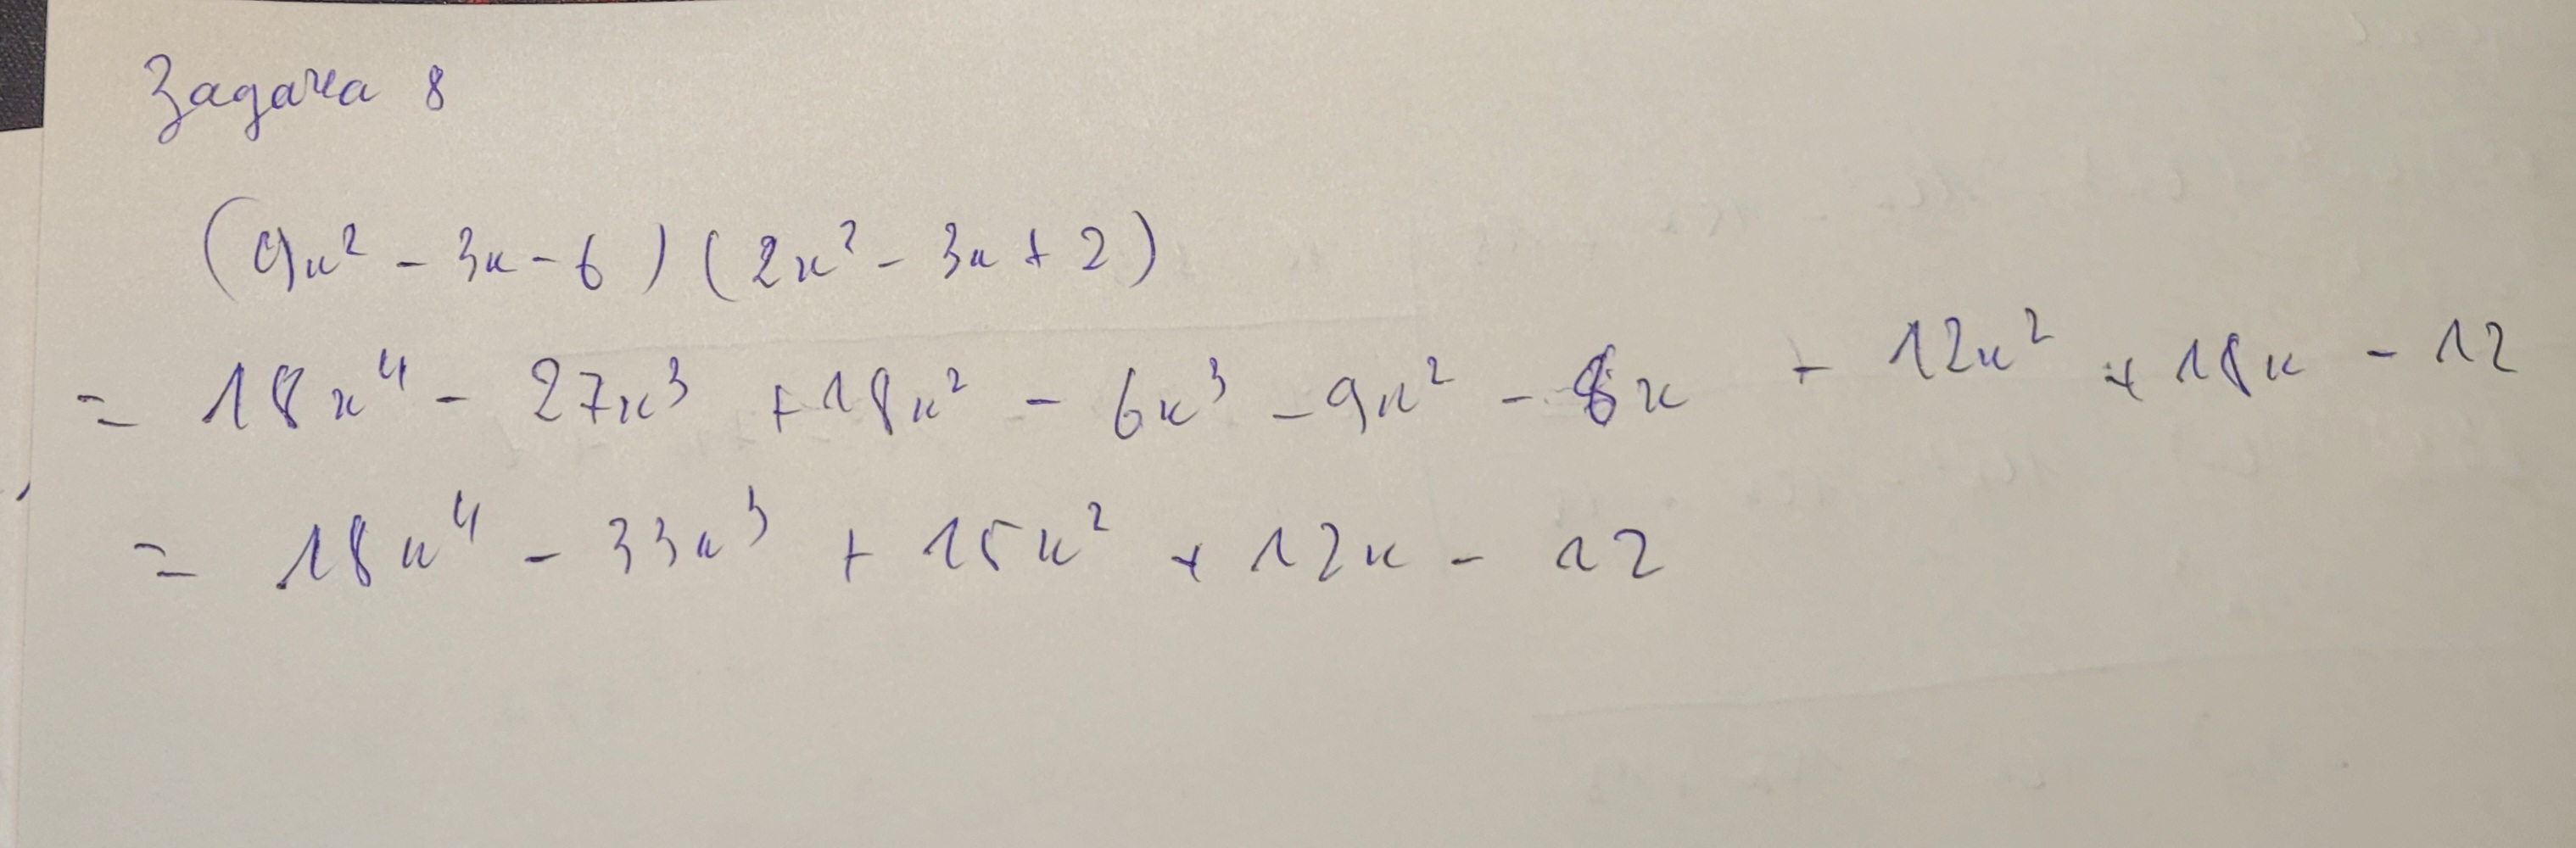 Задача 8
(9x² - 3x - 6) (2x² - 3x + 2)
= 18x⁴ - 27x³ + 18x² - 6x³ - 9x² - 6x + 12x² + 18x - 12
= 18x⁴ - 33x³ + 15x² + 12x - 12